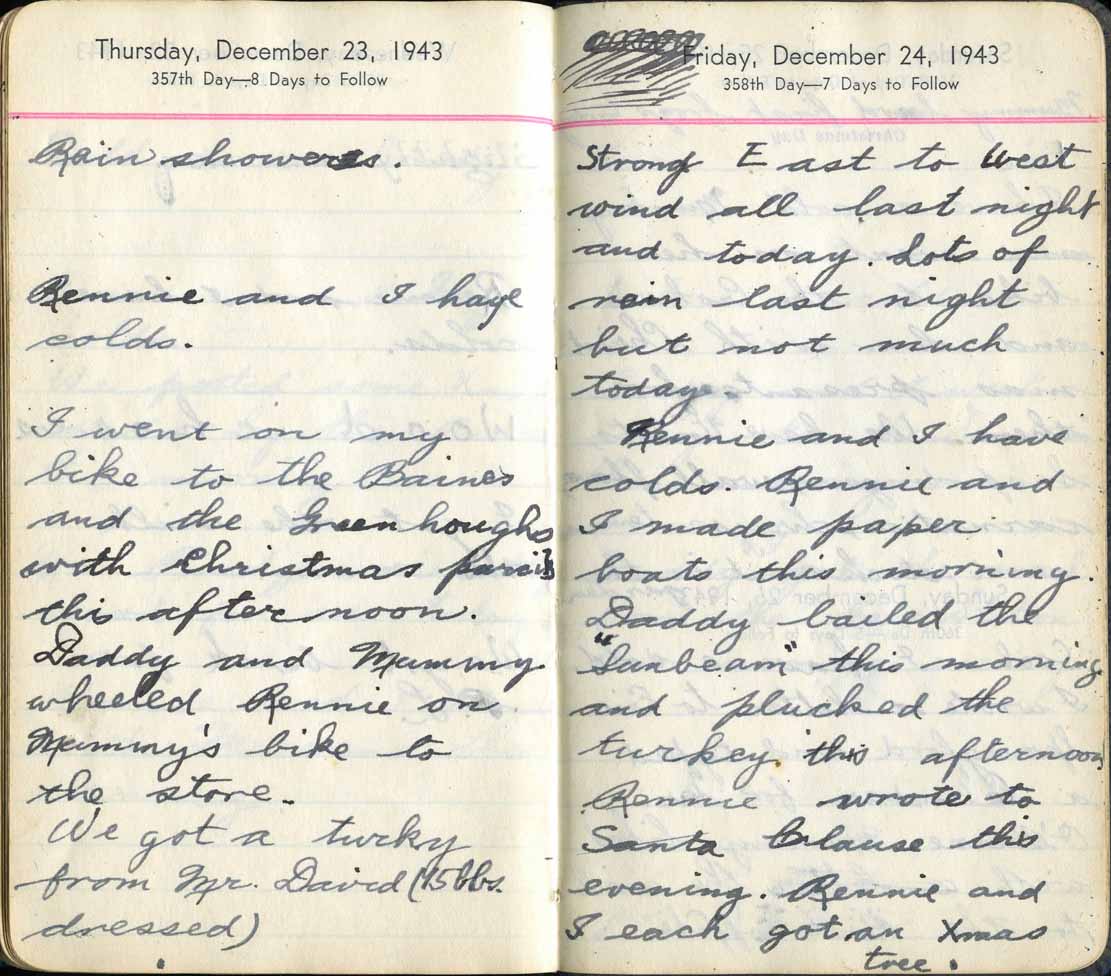 Thursday, December 23, 1943
357th Day—8 Days to Follow
Rain showers.
Rennie and I have
colds.
I went on my
bike to the Baines
and the Greenhoughs
with Christmas
this after noon.
Daddy and Mummy
wheeled Rennie on
Mummy's bike to
the store.
We got a turky
from Mr. David (15 lbs.
dressed)
Friday, December 24, 1943
358th Day—7 Days to Follow
Strong East to West
wind all last night
and today. Lots of
rain last night
but not much
today.
Rennie and I have
colds. Rennie and
I made paper
boats this morning.
Daddy bailed the
"Sunbeam" this morning
and plucked the
turkey this afternoon
Rennie wrote to
Santa Clause this
evening. Rennie and
I each got an Xmas
tree.